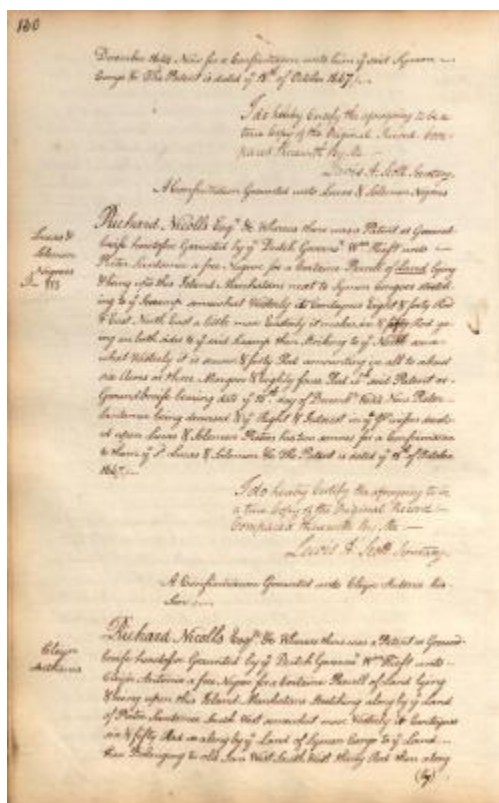 130
December 1644 Now for a Confirmation unto him yᵉ said Symon
Congo &c The Patent is dated yᵉ 18ᵗʰ of October 1667/.
I do hereby Certify the aforegoing to be a
true Copy of the Original Record Com-
pared therewith By Me
Lewis A. Scott Secretary
A Confirmation Granted unto Lucas & Solomon Negroes
Lucas &
Solomon
Negroes
Richard Nicolls Esqʳ &c Whereas there was a Patent or Ground-
briefe heretofore Granted by yᵉ Dutch Governʳ Wᵐ Kieft unto
Pieter Santomee a free Negroe for a Certaine Parcel of Land Lying
& being upon this Island Manhatans next to Symon Congoes stretch-
ing to yᵉ swamp somewhat Westerly it Containes Eight & forty Rod
& East North East a little more Easterly it makes six & fifty Rod go-
ing on both sides to yᵉ said swamp then Striking to yᵉ North
what Westerly it is seven & forty Rod amounting in all to about
six Acres or three Morgen & Eighty four Rod yᵉ said Patent or
Groundbriefe bearing date yᵉ 15ᵗʰ day of Decembʳ 1644 Now Pieter
Santomee being deceased & yᵉ Right & Interest in yᵉ Premisses devolv-
ed upon Lucas & Solomon Pieters his two sonnes for a Confirmation
to them yᵉ sᵈ Lucas & Solomon &c The Patent is dated yᵉ of October
1667/.
I do hereby Certify the aforegoing to be
a true Copy of the Original Record
Compared therewith By Me
Lewis A. Scott Secretary
A Confirmation Granted unto Cleyn Antonio
Cleyn
Richard Nicolls Esqʳ &c Whereas there was a Patent or Ground-
briefe heretofore Granted by yᵉ Dutch Governʳ Wᵐ Kieft unto
Cleyn Antonio a free Negro for a Certaine Parcell of Land Lying
& being upon this Island Manhatans Stretching along by yᵉ Land
of Pieter Santomee South West somewhat more Westerly it Containes
six & fifty Rod so along by yᵉ Land of Symon Congo to yᵉ Land
then Belonging to old Jan West South West thirty Rod then along
(by)